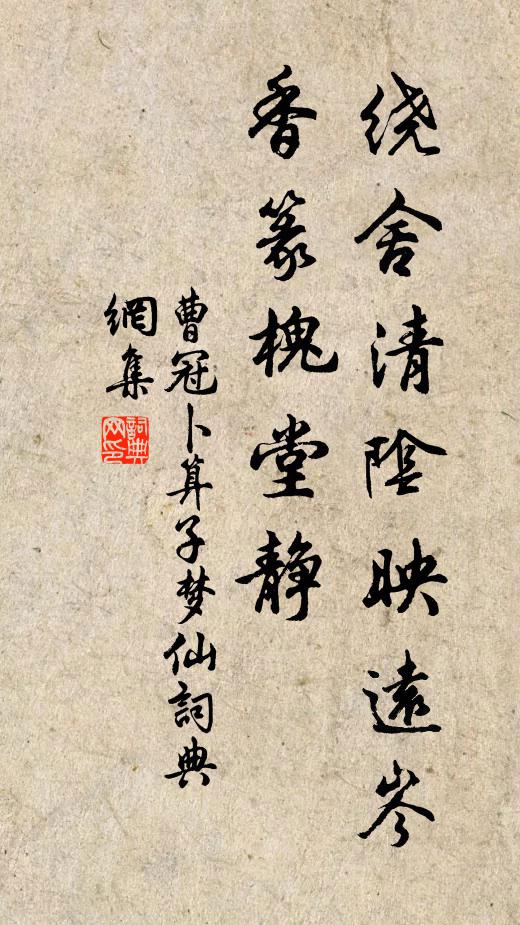 绕舍清陰映遠岑
香篆槐堂静
曹冠卜算子梦仙詞典
網集
詞典
网印